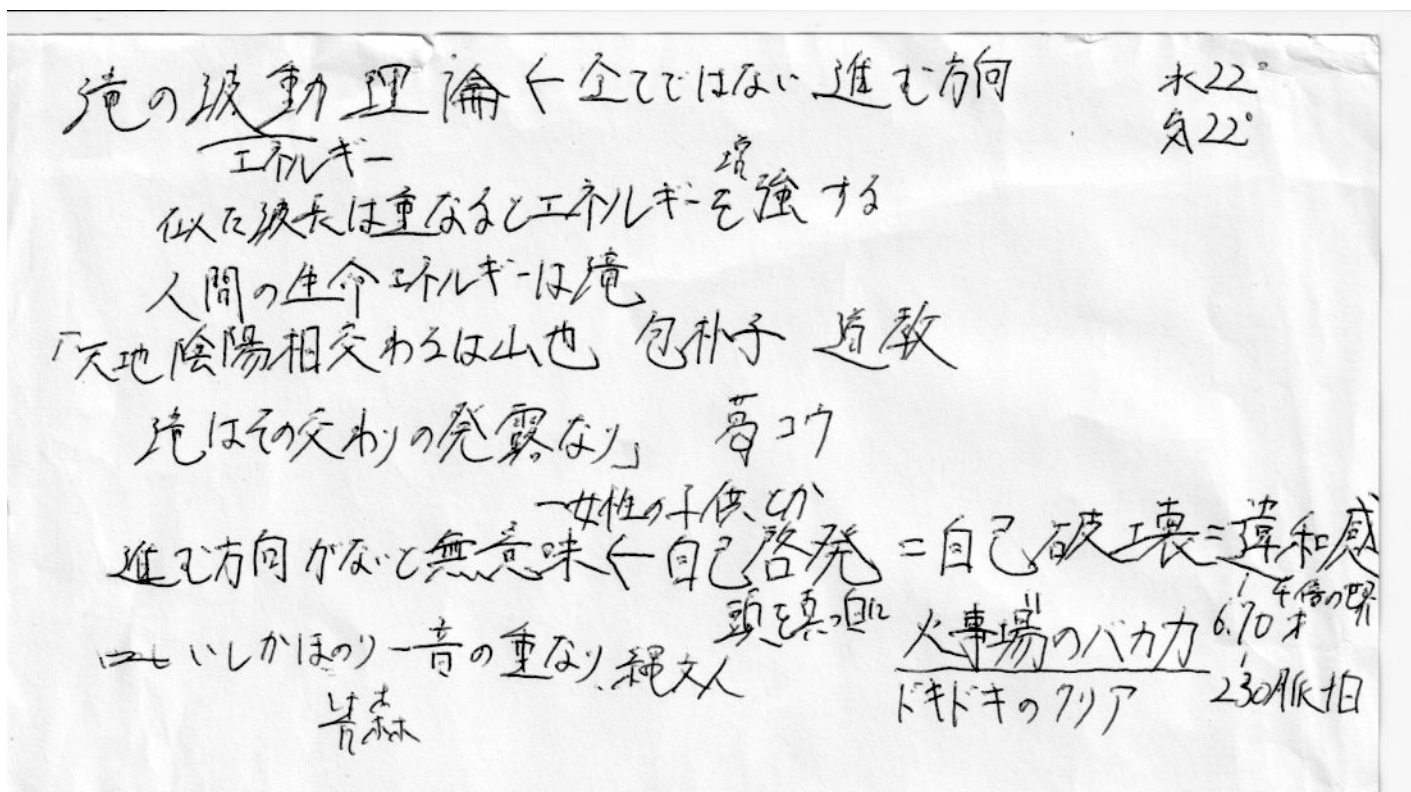 滝の波動理論←全てではない進む方向
水22°
気22°
エネルギー
増
似た波長は重なるとエネルギーを強する
人間の生命エネルギーは滝
「天地陰陽相交わるは山也 包朴子 道教
滝はその交わりの発露なり」 葛コウ
一女性の子供とか
進む方向がないと無意味←自己啓発=自己破壊=違和感
頭を真っ白に
火事場のバカ力
6.70才
いしかほのり一音の重なり、縄文人
青森
ドキドキのクリア
230脈拍